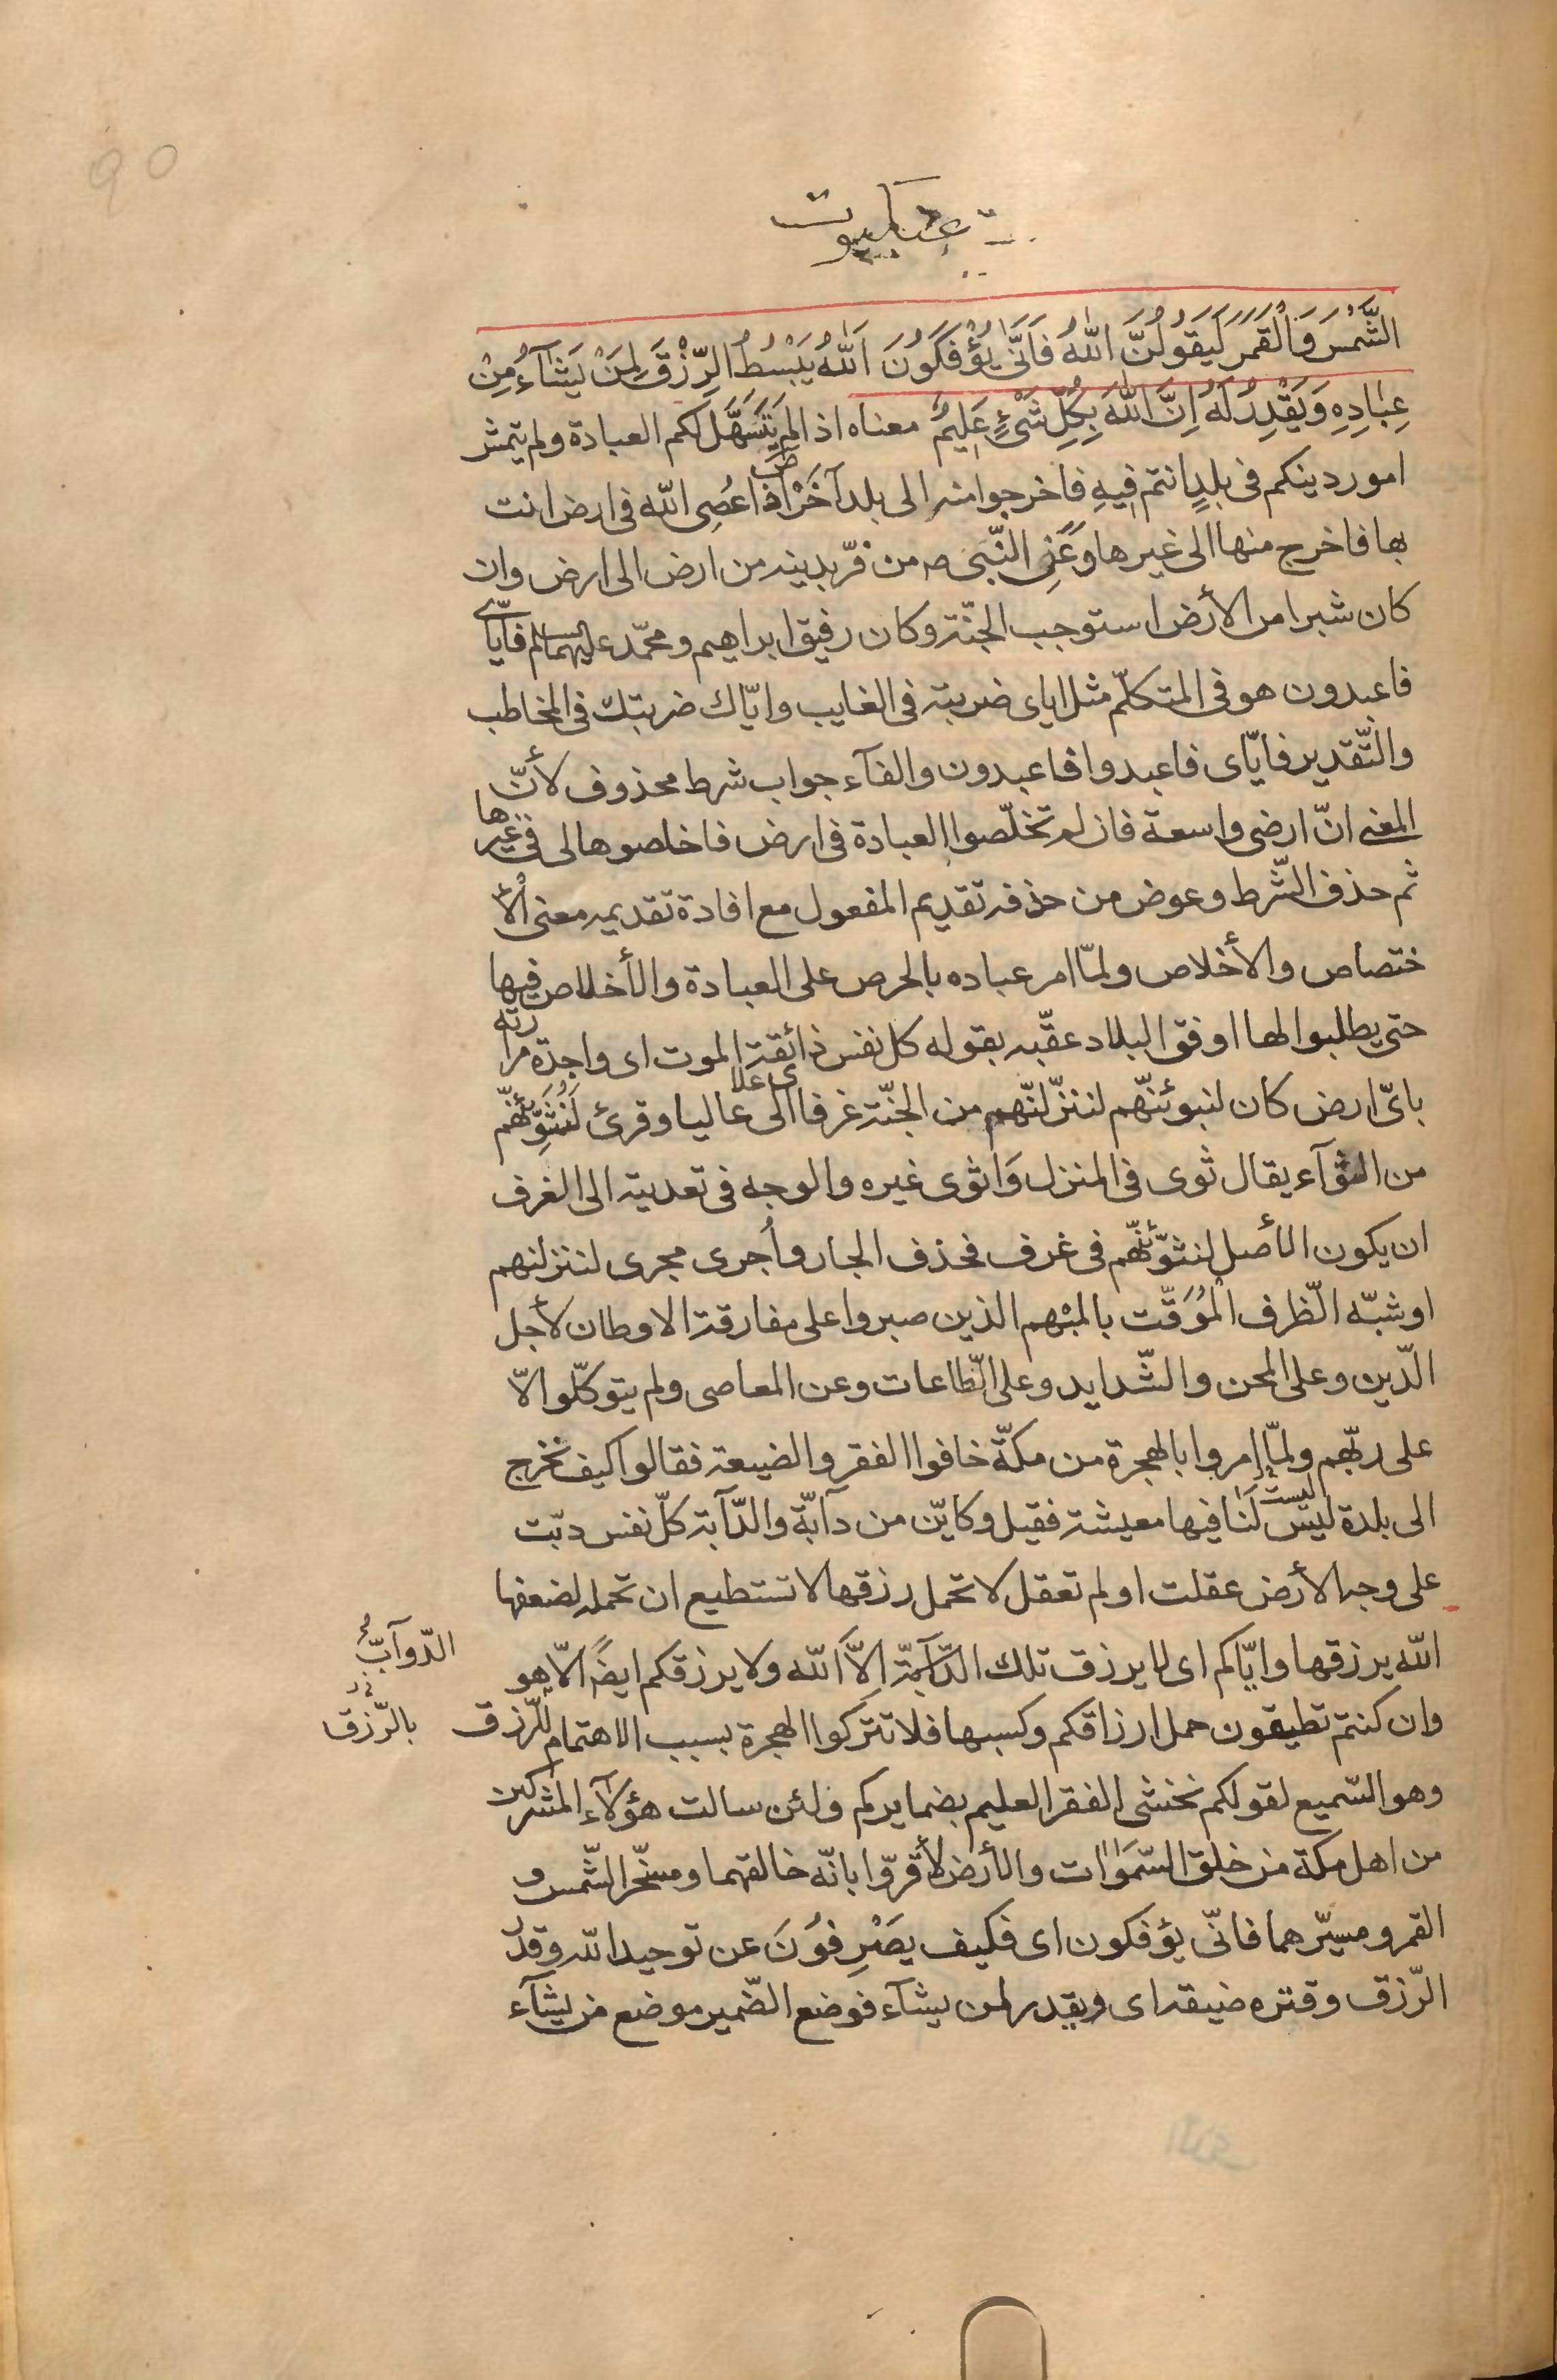 عنكبوت
الشَّمْسَ وَالْقَمَرَ لَيَقُولُنَّ اللّٰهُ فَاَنّٰى يُؤْفَكُونَ اَللّٰهُ يَبْسُطُ الرِّزْقَ لِمَنْ يَشَآءُ مِنْ
عِبٰادِهِ وَيَقْدِرُ لَهُ اِنَّ اللّٰهَ بِكُلِّ شَىْءٍ عَلِيمٌ معناه اذا لم يَتَسَهَّل لكم العبادة ولم يتمش
امور دينكم فى بلدٍ انتم فيهِ فاخرجوا منه الى بلد آخَرْ اذا عُصِى اللّه فى ارض انت
بها فاخرج منها الى غيرها وَعَنِ النّبى ص من فرّ بدينه من ارض الى ارض وان
كان شبرا من الأرض استوجب الجنّة وكان رفيق ابراهيم ومحمّد عليهما السلم فايّاى
فاعبدون هو فى المتكلّم مثل اياى ضربته فى الغايب وايّاك ضربتك فى المخاطب
والتّقدير فايّاى فاعبدوا فاعبدون والفآء جواب شرط محذوف لأنّ
المعنى انّ ارضى واسعة فان لم تخلّصوا العبادة فى ارض فاخلصوها لى فى غيرها
ثم حذف الشّرط وعوض من حذفه تقديم المفعول مع افادة تقديمه معنى الأ
ختصاص والأخلاص ولمّا امر عباده بالحرص على العبادة والأخلاص فيها
حتى يطلبوا لها اوفق البلاد عقّبه بقوله كل نفس ذائقة الموت اى واجدة مرارته
باىّ ارض كان لنبوئنّهم لننزّلنّهم من الجنّة غرفا الى علالى عاليا وقرئ لَنُثَوِّئَنَّهُمْ
من الثوآء يقال ثوى فى المنزل وَاثوى غيره والوجه فى تعديته الى الغرف
ان يكون الأصل لنثوّئنّهم فى غرف فحذف الجار وأُجرى مجرى لننزلنهم
او شبّه الظّرف المُوَقّت بالمبْهم الذين صبروا على مفارقة الاوطان لأجل
الدّين وعلى المحن والشّدايد وعلى الطّاعات وعن المعاصى ولم يتوكّلوا الّا
على ربّهم ولمّا امروا بالهجرة من مكّة خافوا الفقر والضيعة فقالوا كيف نخرج
الى بلدة ليس ليست لَنا فيها معيشة فقيل وكايّن من دآبّة والدّآبة كلّ نفس دبّت
على وجه الأرض عقلت او لم تعقل لا تحمل رزقها لا تستطيع ان تحمله لضعفها
اللّه يرزقها وايّاكم اى لا يرزق تلك الدّآبّة الاَّ اللّه ولا يرزقكم ايضًا الّا هو
الدّوآبّ
وان كنتم تطيقون حمل ارزاقكم وكسبها فلا تتركوا الهجرة بسبب الاهتمام للرّزق
بالرّزق
وهو السّميع لقولكم نخشى الفقر العليم بضمايركم ولئن سالت هؤلآء المشركين
من اهل مكة من خلق السّمَوٰات والأرض لأقرّوا بانّه خالقهما ومسخّر الشّمس و
القمر ومسيّرهما فانّى يؤفكون اى فكيف يصَْرِفوُنَ عن توحيد اللّه وقدر
الرّزق وقتره ضيقه اى ويقدر لمن يشآء فوضع الضّمير موضع من يشآء